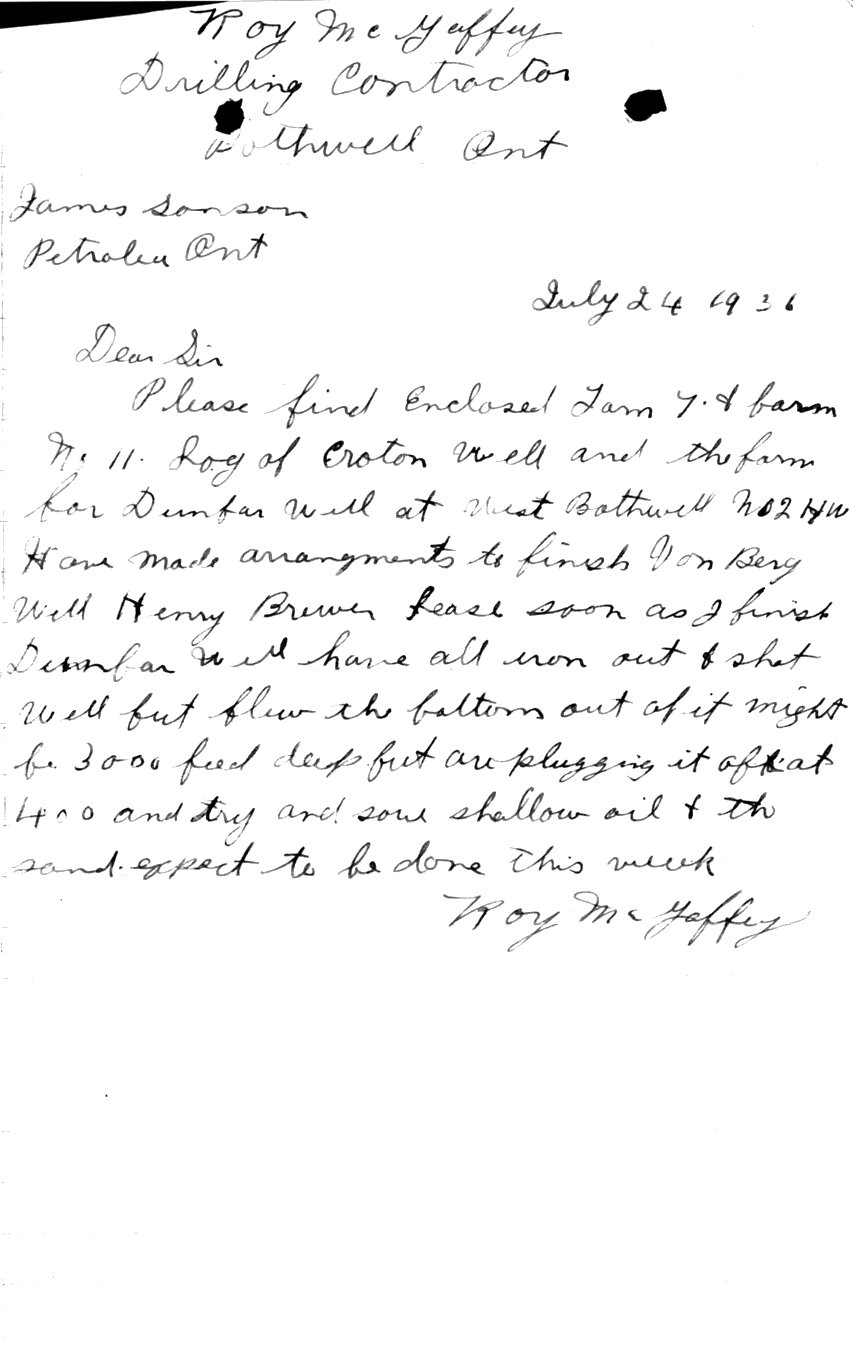 Roy Mc Gaffey
Drilling Contractor
Bothwell Ont
James Sonson
Petrolea Ont
July 24 1936
Dear Sir
Please find Enclosed Form 7. & form
No 11. Log of Croton Well and the form
for Dunbar Well at West Bothwell No 2 HW
Have made arrangments to finish Von Berg
Well Henry Brewer Lease soon as I finish
Dunbar Well have all iron out & shot
Well but blew the bottom out of it might
be 3000 feed deep but are plugging it off at
400 and try and save shallow oil & th
sand. expect to be done this week
Roy Mc Gaffey